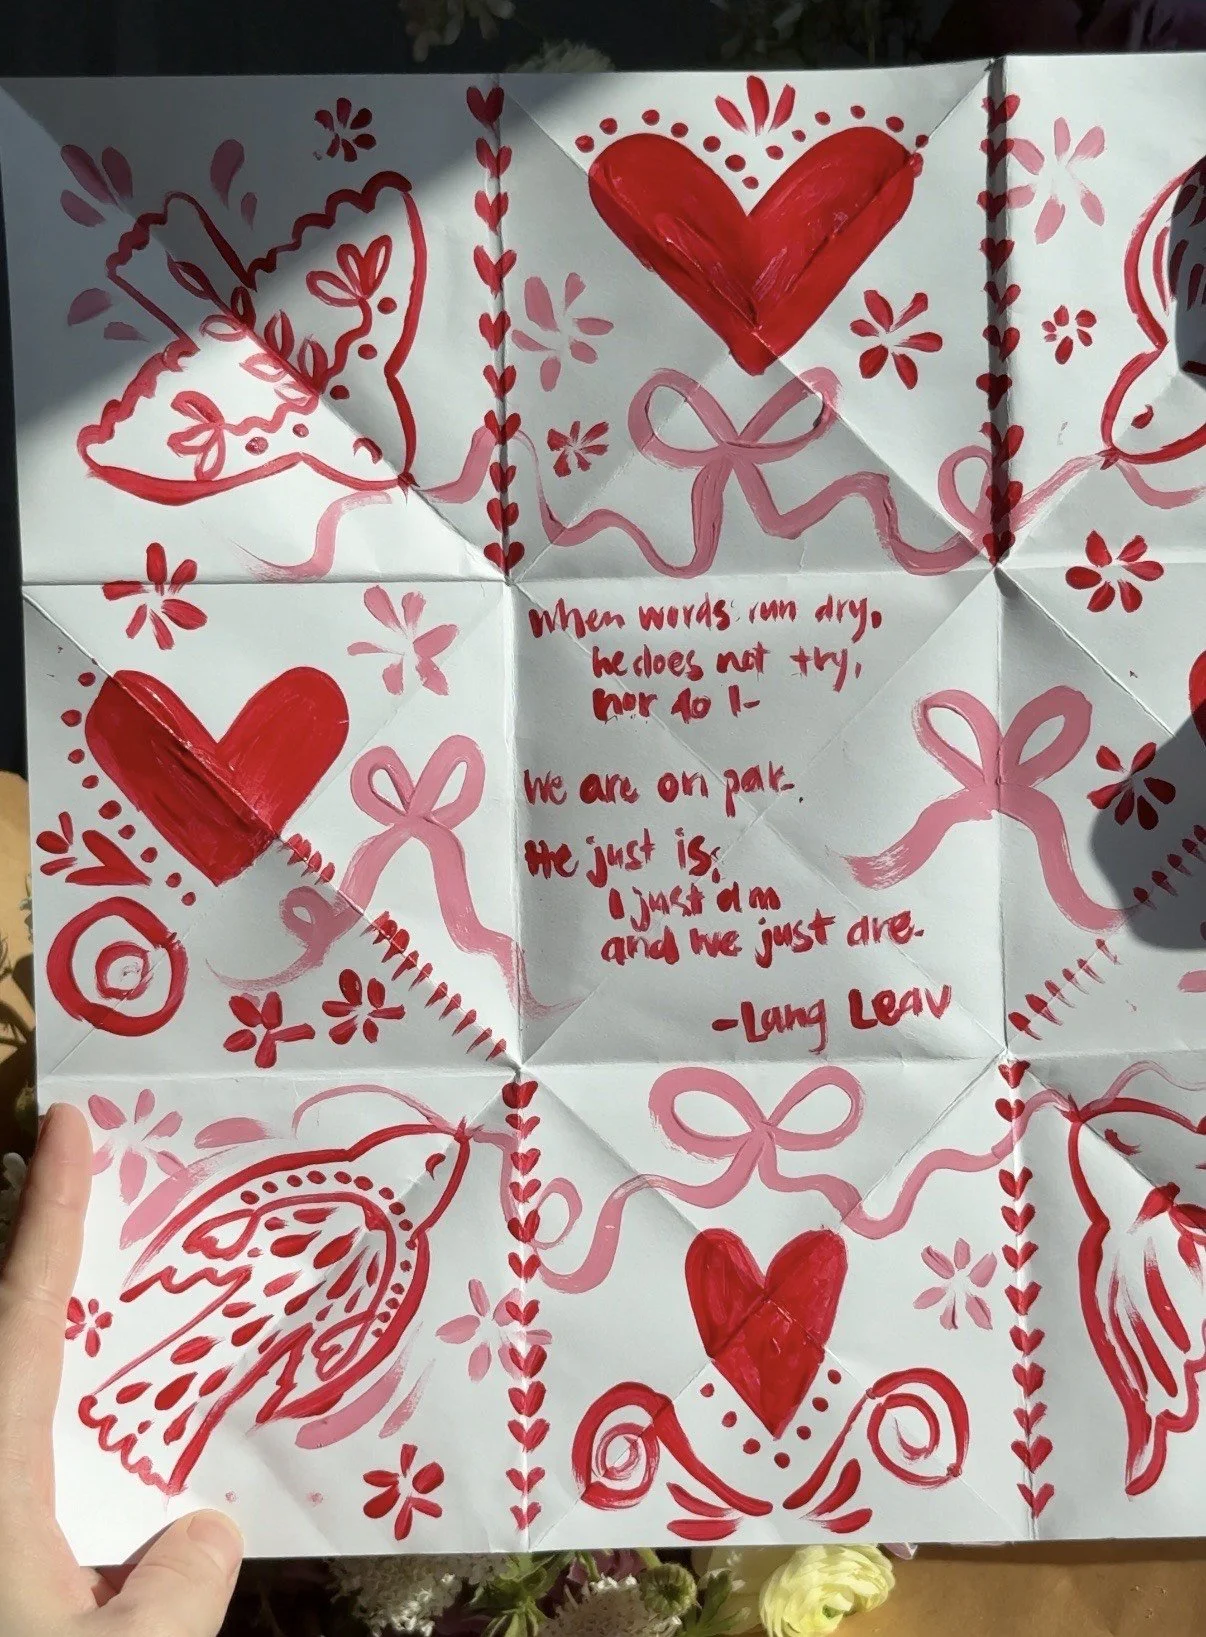 When words run dry,
he does not try,
nor do I-
We are on par.
He just is,
I just am
and we just are.
-Lang Leav